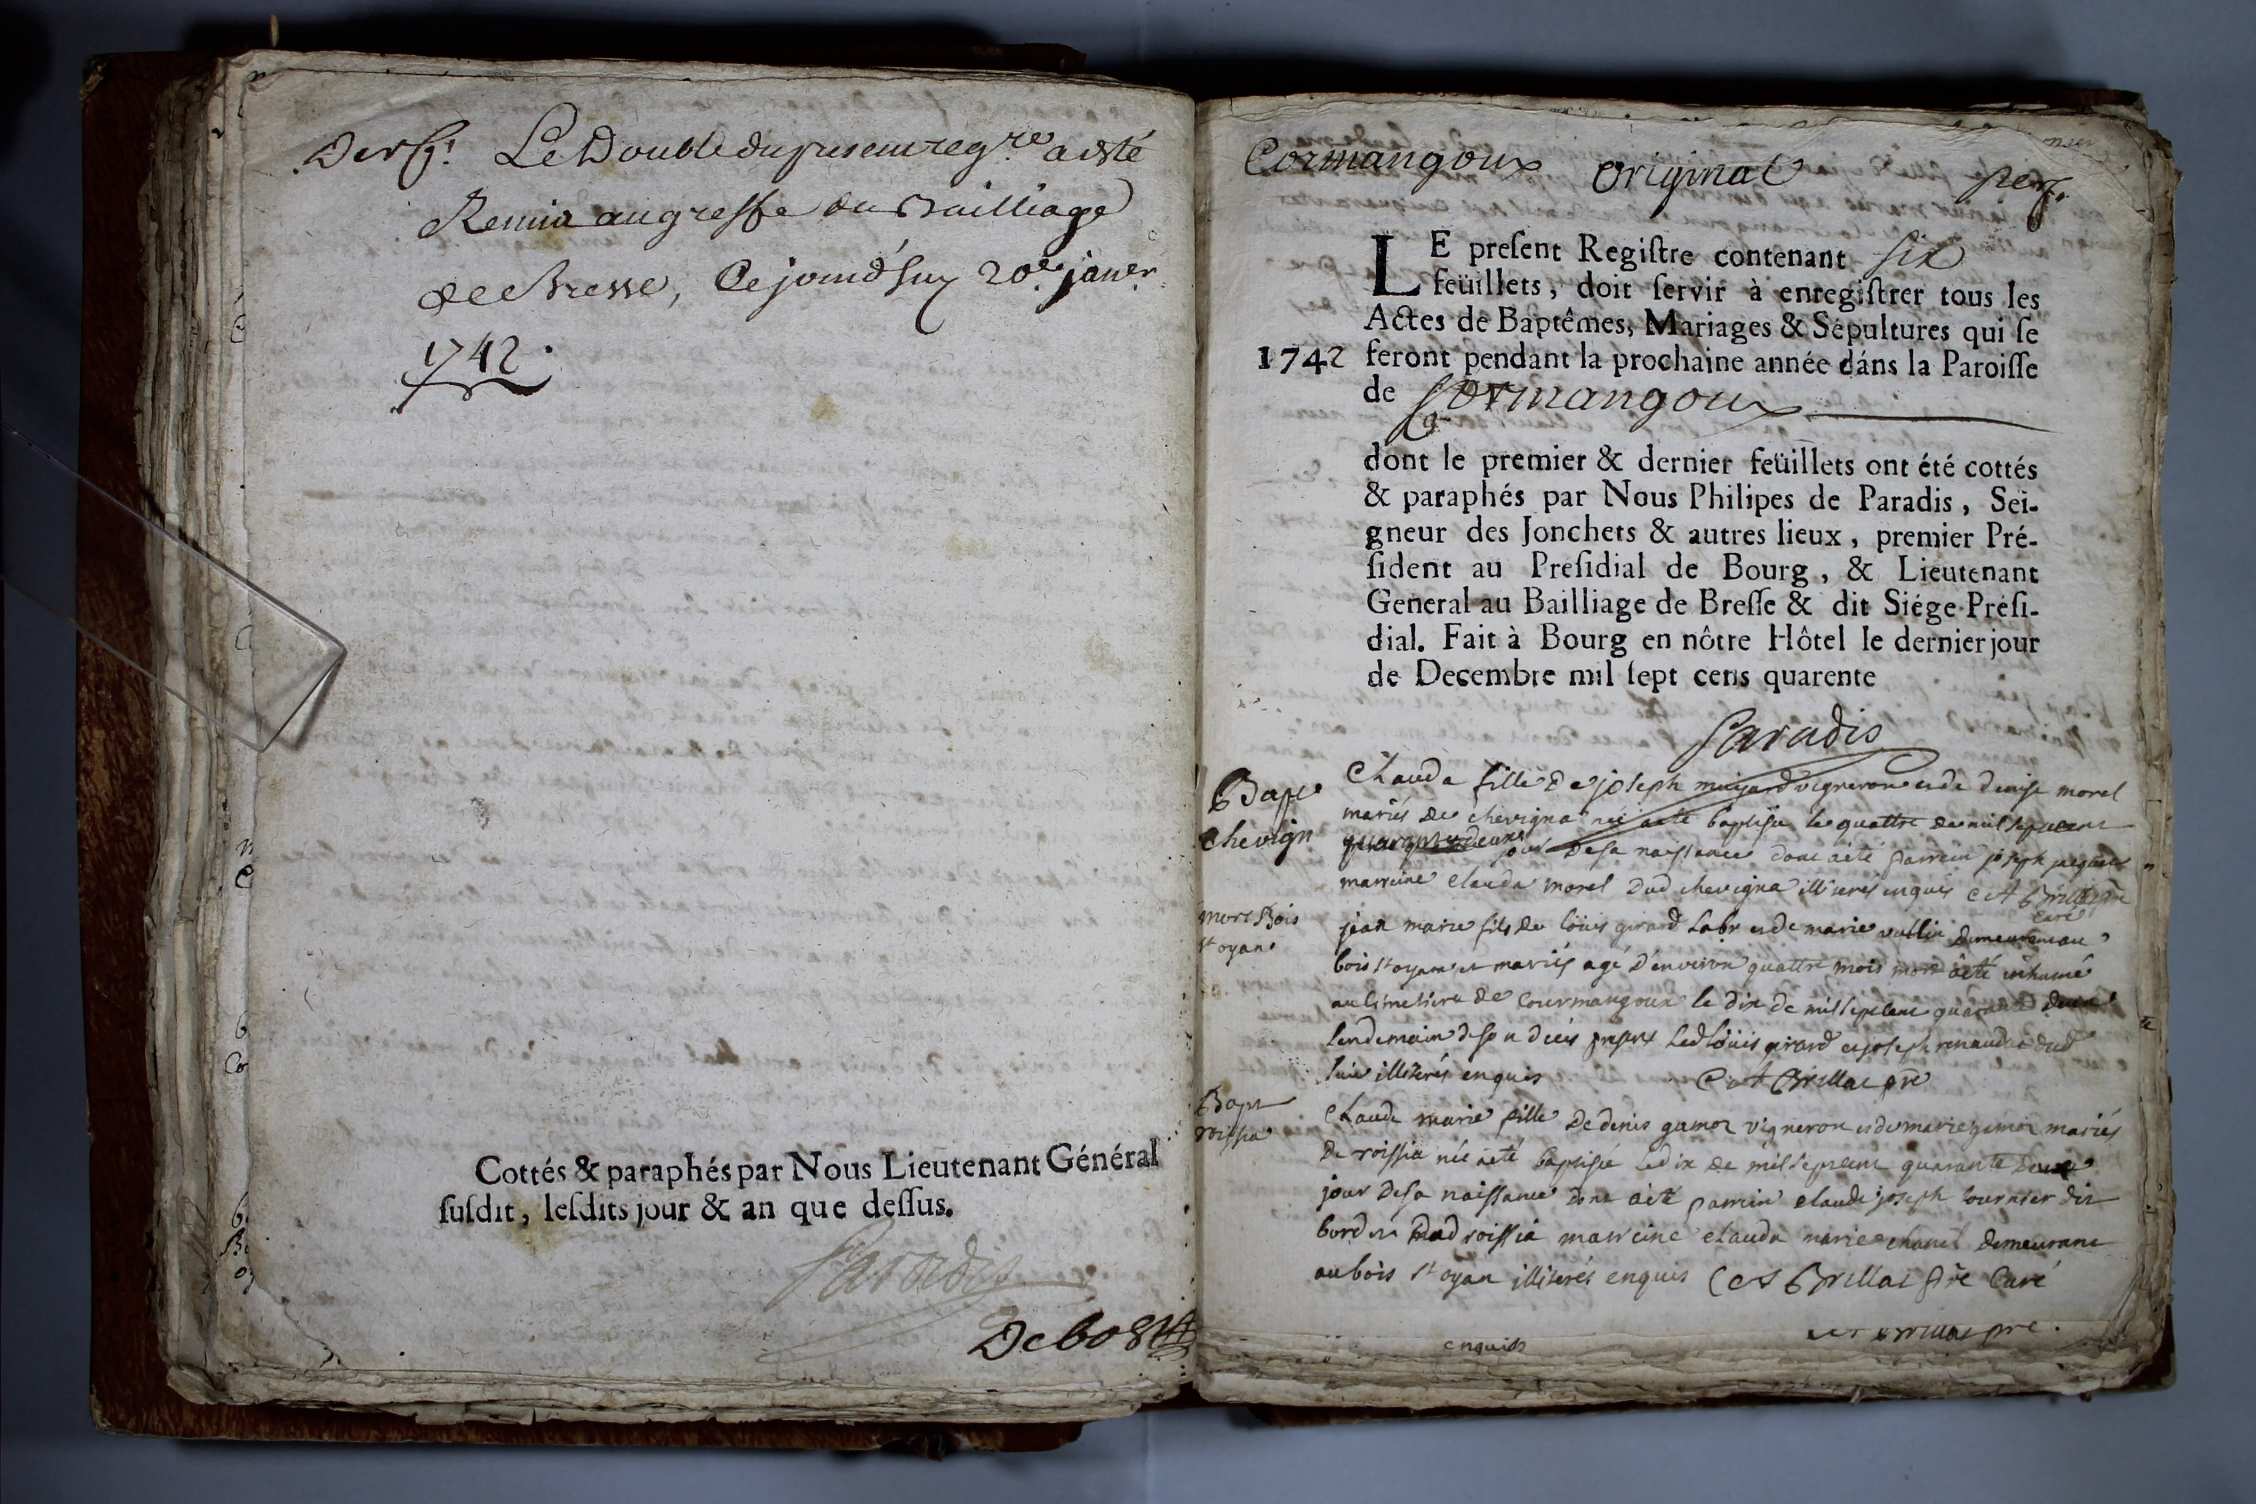 Le Double du present reg.re a esté
Remis au greffe du Bailliage
de Bresse, Ce jourd'huy 20e janer
1742.
Cottés & paraphés par Nous Lieutenant Général
susdit, lesdits jour & an que dessus.
Paradis
Cormangoux original
LE present Registre contenant six
feüillets, doit servir à enregistrer tous les
Actes de Baptêmes, Mariages & Sépultures qui se
1742 feront pendant la prochaine année dans la Paroisse
de Cormangoux
dont le premier & dernier feüillets ont été cottés
& paraphés par Nous Philipes de Paradis, Sei-
gneur des Jonchets & autres lieux, premier Pré-
sident au Presidial de Bourg, & Lieutenant
General au Bailliage de Bresse & dit Siége Présι-
dial. Fait à Bourg en nôtre Hôtel le dernier jour
de Decembre mil sept cens quarente
Paradis
Bapt
chevign
Clauda fille de joseph vigneron et de denise morel
mariés de chevigna née a eté baptisée le quattre de mil sept cent
quarante deux jour de sa naissance dont a eté parrein joseph
marreine Clauda morel dud chevigna illiterés enquis C A Brillat pre
curé
mort Bois
st oyan
jean marie fils de loüis girard labr et de marie vullin demeurant au
bois st oyan et mariés agé d'environ quattre mois mort a eté inhumé
au cimetiere de Courmangoux le dix de mil sept cent quarante deux
lendemain de son décés led loüis girard et joseph renaud dud
lieu illiterés enquis C A Brillat pre
Bapt
roissia
Claude marie fille de denis gamot vigneron et de marie gamot mariés
de roissia née a eté baptisée le dix de mil sept cent quarante deux
jour de sa naissance dont a eté parrein claude joseph tournier dit
dud roissia marreine clauda marie demeurant
au bois st oyan illiterés enquis C A Brillat pre Curé
enquis